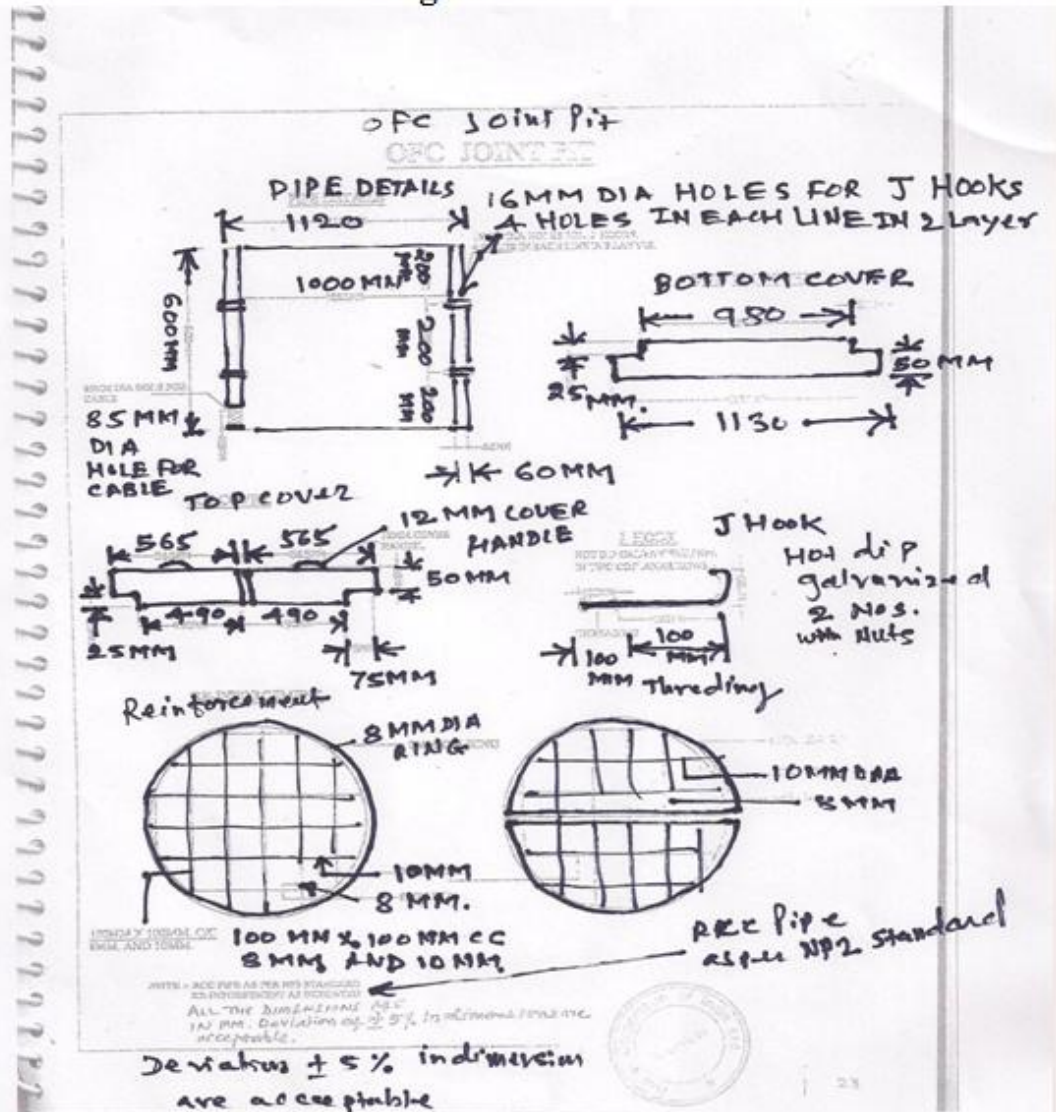 OFC Joint Pit
OFC JOINT PIT
PIPE DETAILS
1120
16MM DIA HOLES FOR J HOOKS
4 HOLES IN EACH LINE IN 2 Layer
1000 MM
200 MM
200 MM
200 MM
600 MM
BOTTOM COVER
980
25 MM.
50 MM
1130
85 MM
DIA
HOLE FOR
CABLE
60MM
TOP COVER
565
565
12 MM COVER
HANDLE
50MM
490
490
25MM
75MM
J HOOK
J Hook
Hot dip
galvanized
2 Nos.
with Nuts
100
MM
100
MM
Threding
Reinforcement
8 MM DIA
RING
10MM
8 MM.
100 MM X 100 MM CC
8 MM AND 10 MM
10MM DIA
8MM
RCC Pipe
as per NP2 Standard
ALL THE DIMENSIONS ARE
IN MM. Deviation of ± 5% in dimensions are
acceptable.
Deviation ± 5% in dimersion
are acceptable
23